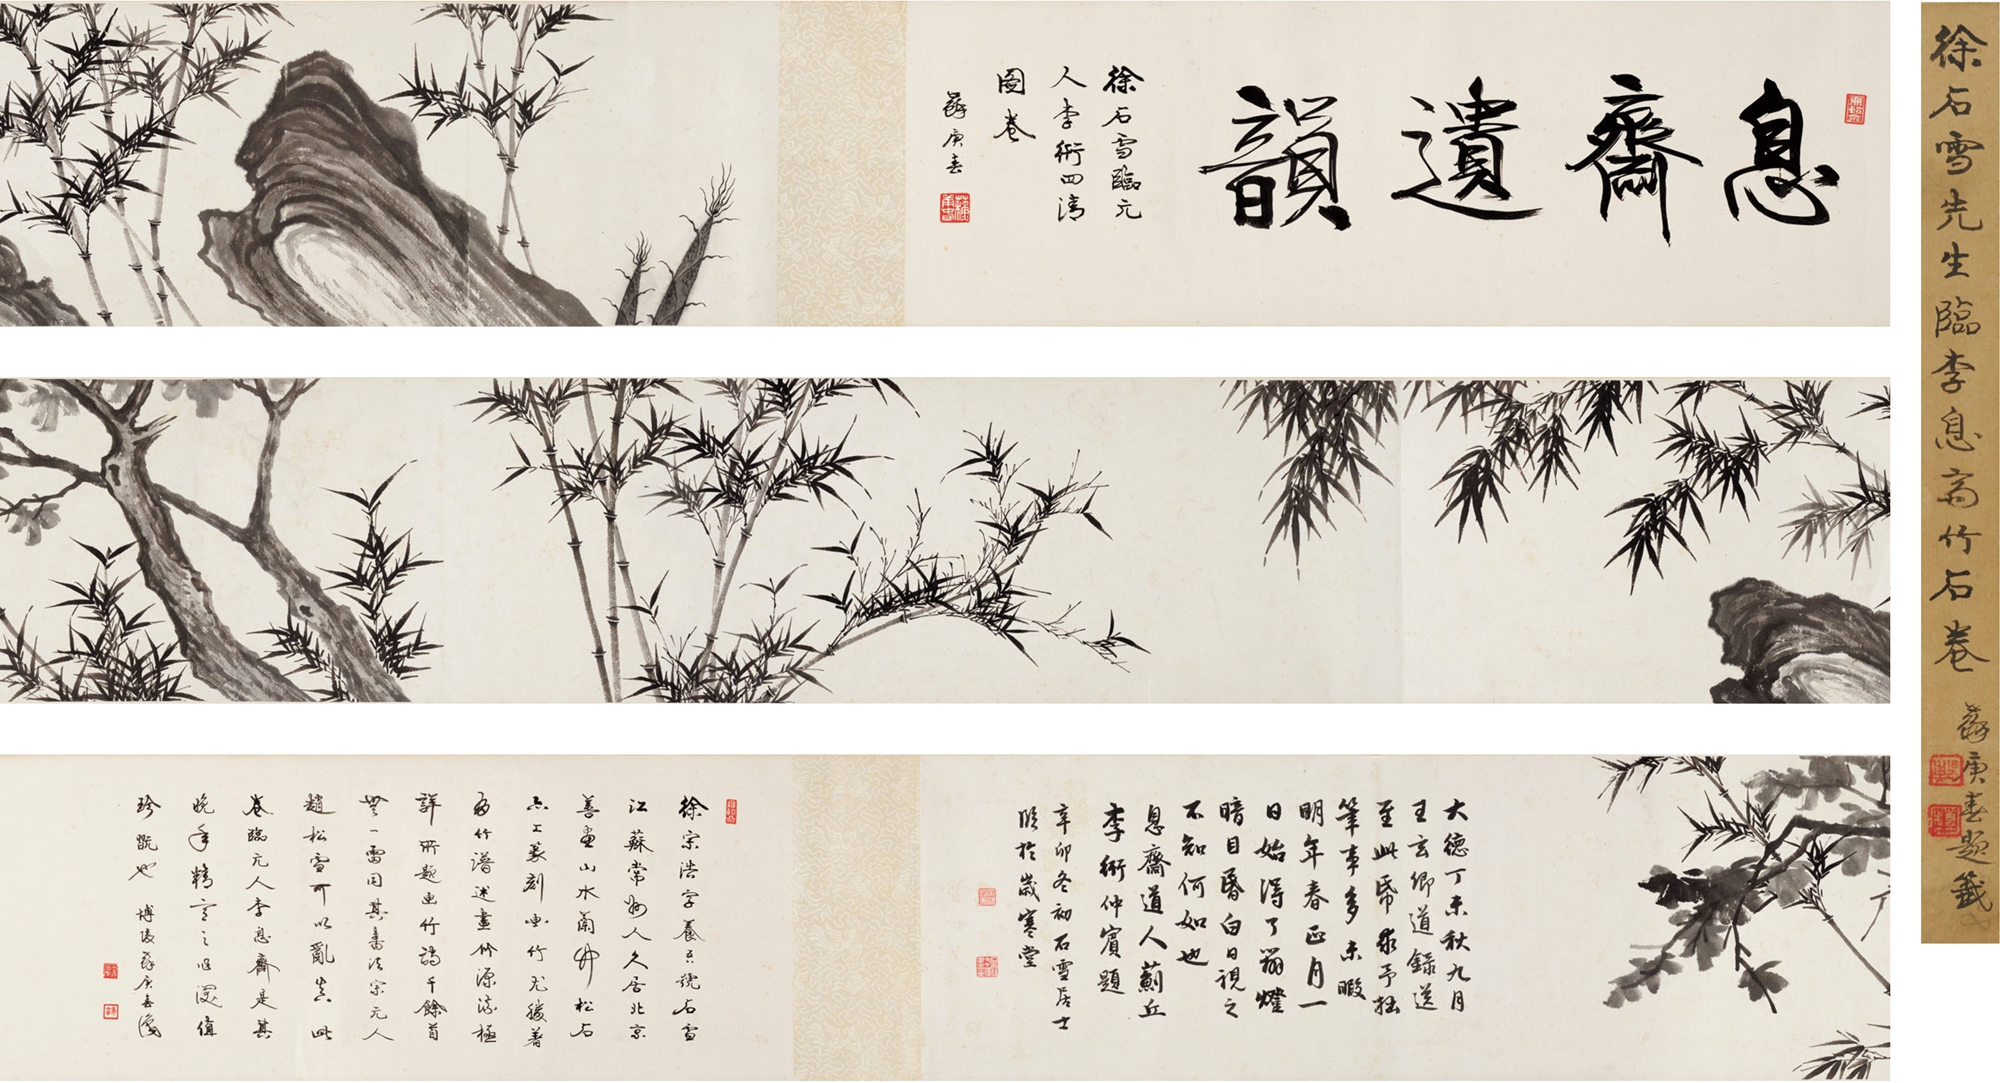 徐石雪先生臨李息齋竹石卷
蘇庚春題籤
息齋遺韻
徐石雪臨元
人李衎四清
圖卷
蘇庚春
大德丁未秋九月
王玄卿道錄送
至此昏求予拙
筆事多未暇
明年春正月一
日始得了翦燈
暗目昏白日視之
不知何如也
息齋道人薊丘
李衎仲賓題
辛卯冬初石雪居士
臨於歲寒堂
徐宗浩字養吾號石雪
江蘇常州人久居北京
善畫山水蘭竹松石
亦工篆刻畫竹尤勝著
有竹譜述畫竹源流極
詳所題畫竹詩千餘首
無一雷同其書法宗元人
趙松雪可以亂真此
卷臨元人李息齋是其
晚年精意之作邃值
珍翫也 博陵蘇庚春識